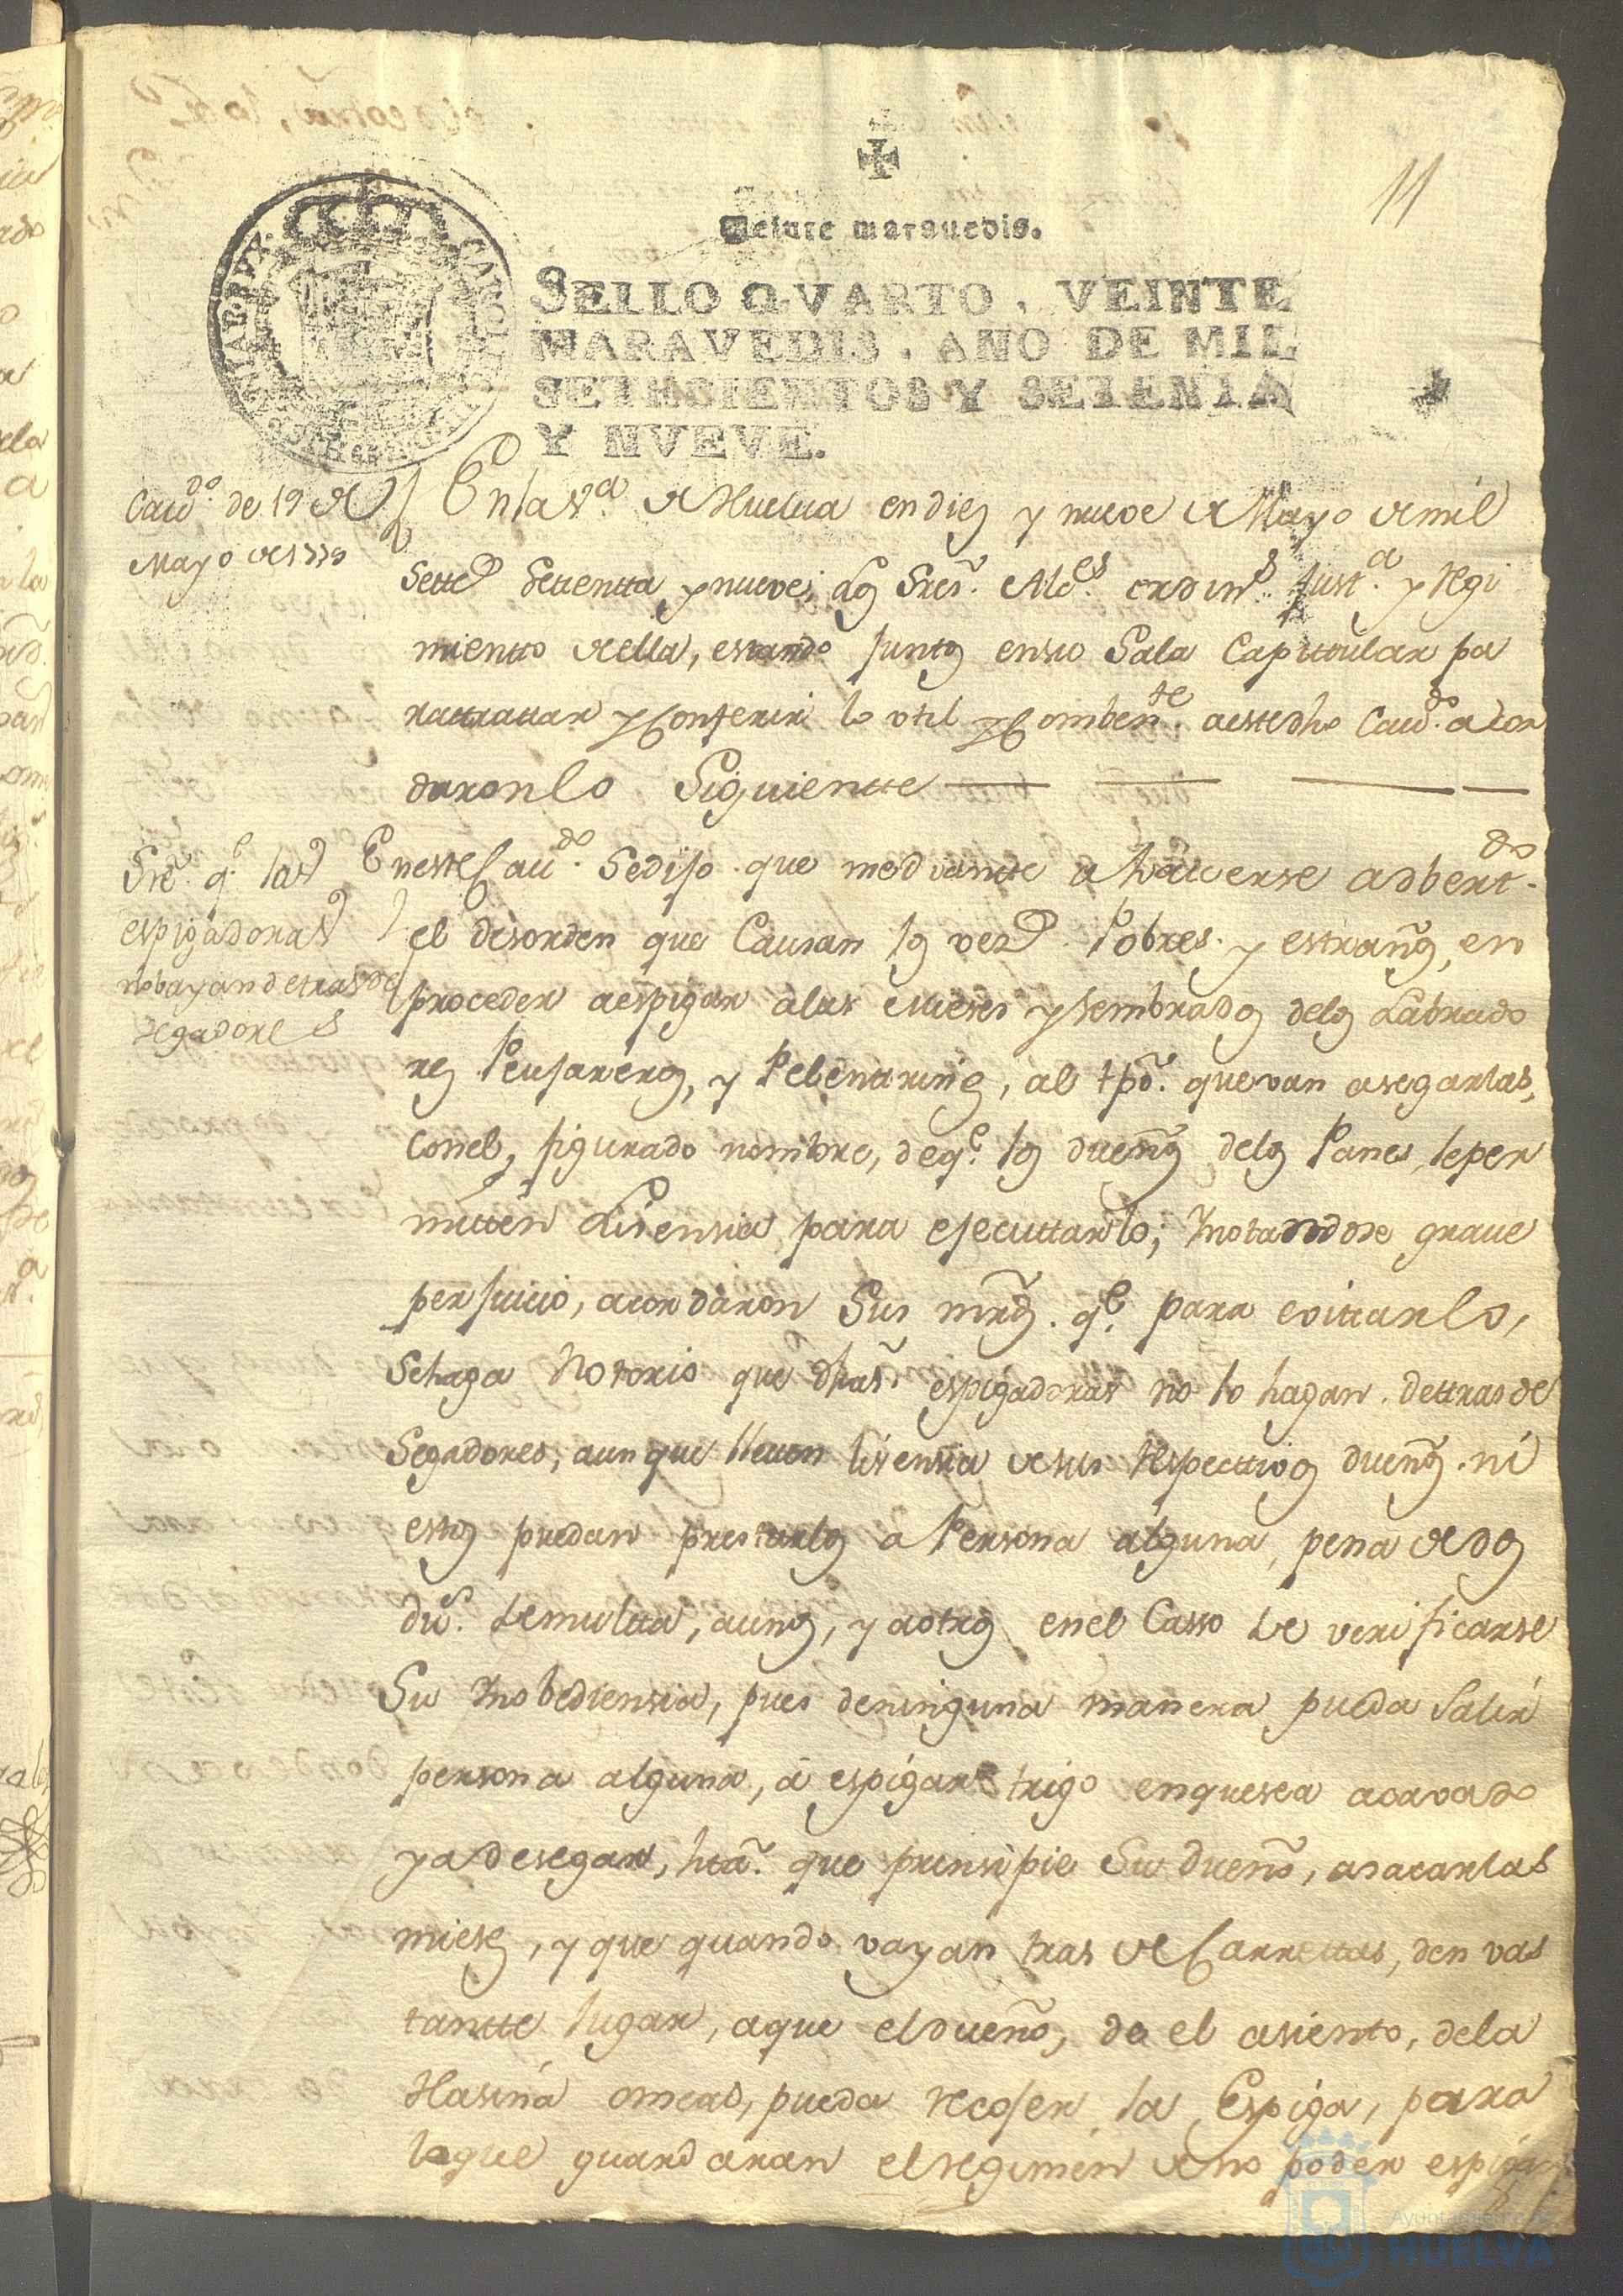 11
Veinte maravedis.
SELLO QVARTO, VEINTE
MARAVEDIS, AÑO DE MIL
SETECIENTOS Y SETENTA
Y NVEVE.
Cavdo. de 19 de
Mayo de 1779
En la va. de Huelva en diez y nueve de Mayo de mil
settes setentta y nueve; los Sres. Alcdes. ordins. Justa. y regi
mientto de ella, estando juntos en su Sala Capittular pa
ra ttrattar y Conferir lo util y Combente. a este dho Cavdo. acor
daron lo Siguientte
Sre. qe. las
espigadoras
no bayan detras de
segadores
En este Cavdo. se dijo que mediantte a haverse adbertdo.
el desorden que Causan los vezs. Pobres y estraños, en
proceder a espigar a las Mieses y sembrados de los Labrado
res Peujareros, y Pelentrines, al tpo. que van a segarlas,
con el figurado nombre, de qe. los dueños de los Panes, le per
mitten Lisensia para ejecuttarlo; Y notandose grave
perjuicio, acordaron Sus mrds. qe. para evittarlo,
se haga Notorio que dhas. espigadoras no lo hagan dettras de
Segadores, aunque lleven lisensia de sus respecttivos dueños ni
estos puedan prestarlos a Persona alguna, pena de dos
dus. de multta, a unos, y a otros en el Casso de verificarse
Su Ynobediensia, pues de ninguna manera pueda Salir
persona alguna, a espigar trigo en que sea acavado
ya de segar, hta. que prinsipie Su dueño, a sacar las
mieses, y que quando vayan tras de Carrettas, den vas
tantte lugar, a que el dueño, de el asiento, de la
Hasina o meas, pueda recojer la Espiga, para
lo que guardaran el regimen de no poder espigar
Ayuntamiento de
HUELVA